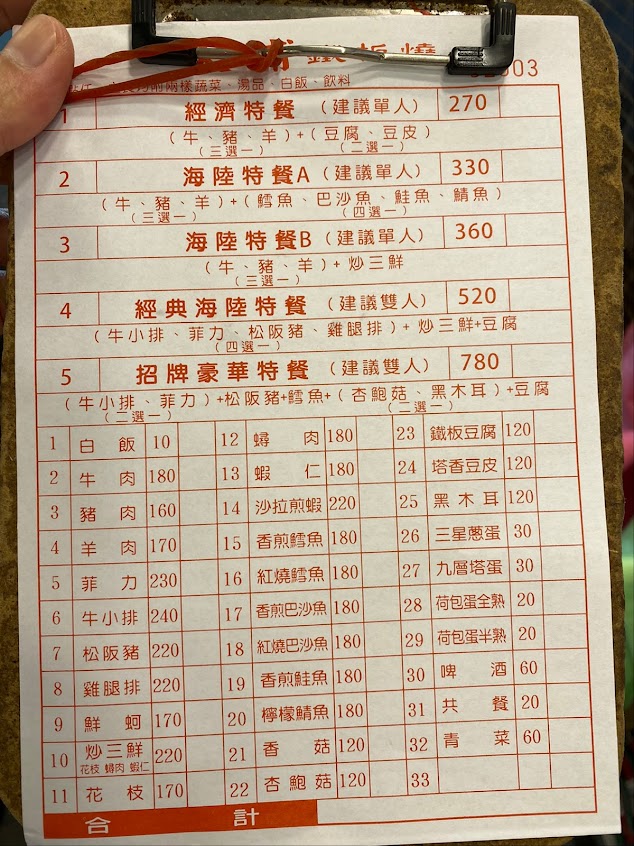 鐵板燒
兩樣蔬菜、湯品、白飯、飲料
1 經濟特餐 (建議單人) 270
(牛、豬、羊)+(豆腐、豆皮)
(三選一) (二選一)
2 海陸特餐A (建議單人) 330
(牛、豬、羊)+(鱈魚、巴沙魚、鮭魚、鯖魚)
(三選一) (四選一)
3 海陸特餐B (建議單人) 360
(牛、豬、羊)+炒三鮮
(三選一)
4 經典海陸特餐 (建議雙人) 520
(牛小排、菲力、松阪豬、雞腿排)+炒三鮮+豆腐
(四選一)
5 招牌豪華特餐 (建議雙人) 780
(牛小排、菲力)+松阪豬+鱈魚+(杏鮑菇、黑木耳)+豆腐
(二選一) (二選一)
1 白飯 10 12 蟳肉 180 23 鐵板豆腐 120
2 牛肉 180 13 蝦仁 180 24 塔香豆皮 120
3 豬肉 160 14 沙拉煎蝦 220 25 黑木耳 120
4 羊肉 170 15 香煎鱈魚 180 26 三星蔥蛋 30
5 菲力 230 16 紅燒鱈魚 180 27 九層塔蛋 30
6 牛小排 240 17 香煎巴沙魚 180 28 荷包蛋全熟 20
7 松阪豬 220 18 紅燒巴沙魚 180 29 荷包蛋半熟 20
8 雞腿排 220 19 香煎鮭魚 180 30 啤酒 60
9 鮮蚵 170 20 檸檬鯖魚 180 31 共餐 20
10 炒三鮮 花枝 蟳肉 蝦仁 220 21 香菇 120 32 青菜 60
11 花枝 170 22 杏鮑菇 120 33
合計